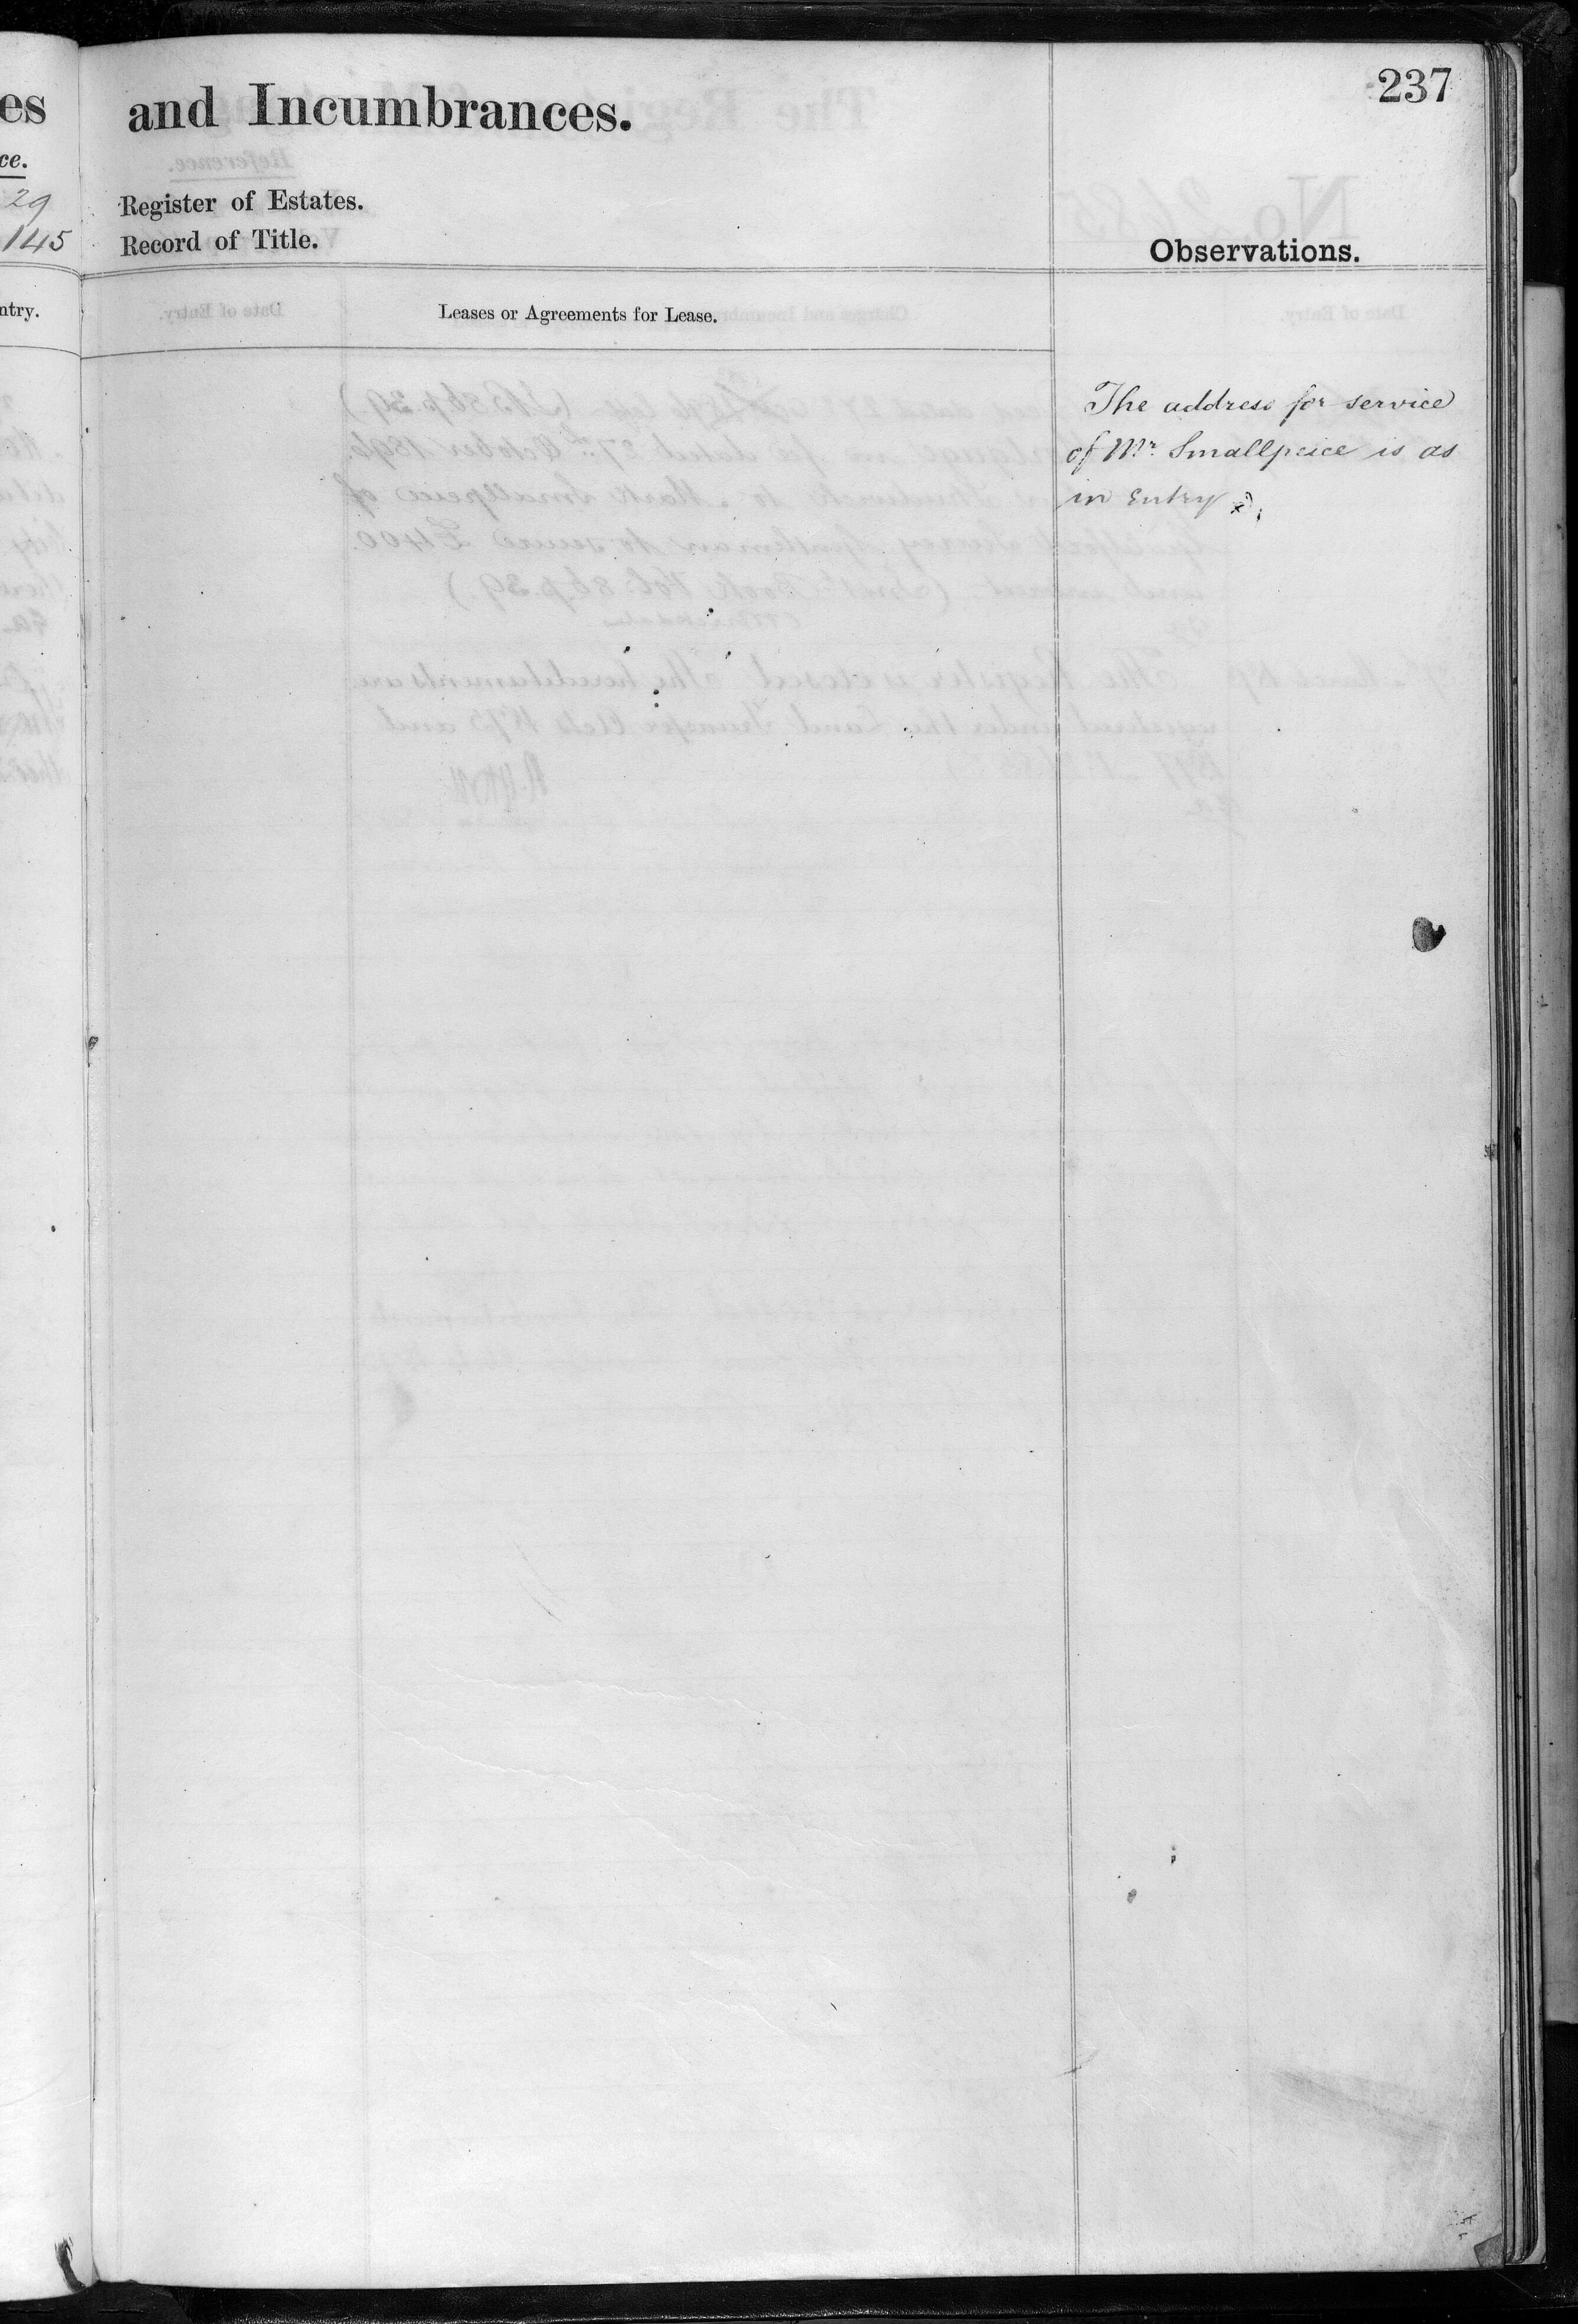 237
es
ce.
29
145
ntry.
and Incumbrances.
Register of Estates.
Record of Title.
Observations.
Leases or Agreements for Lease.
The address for service
of Mr. Smallpeice is as
in Entry